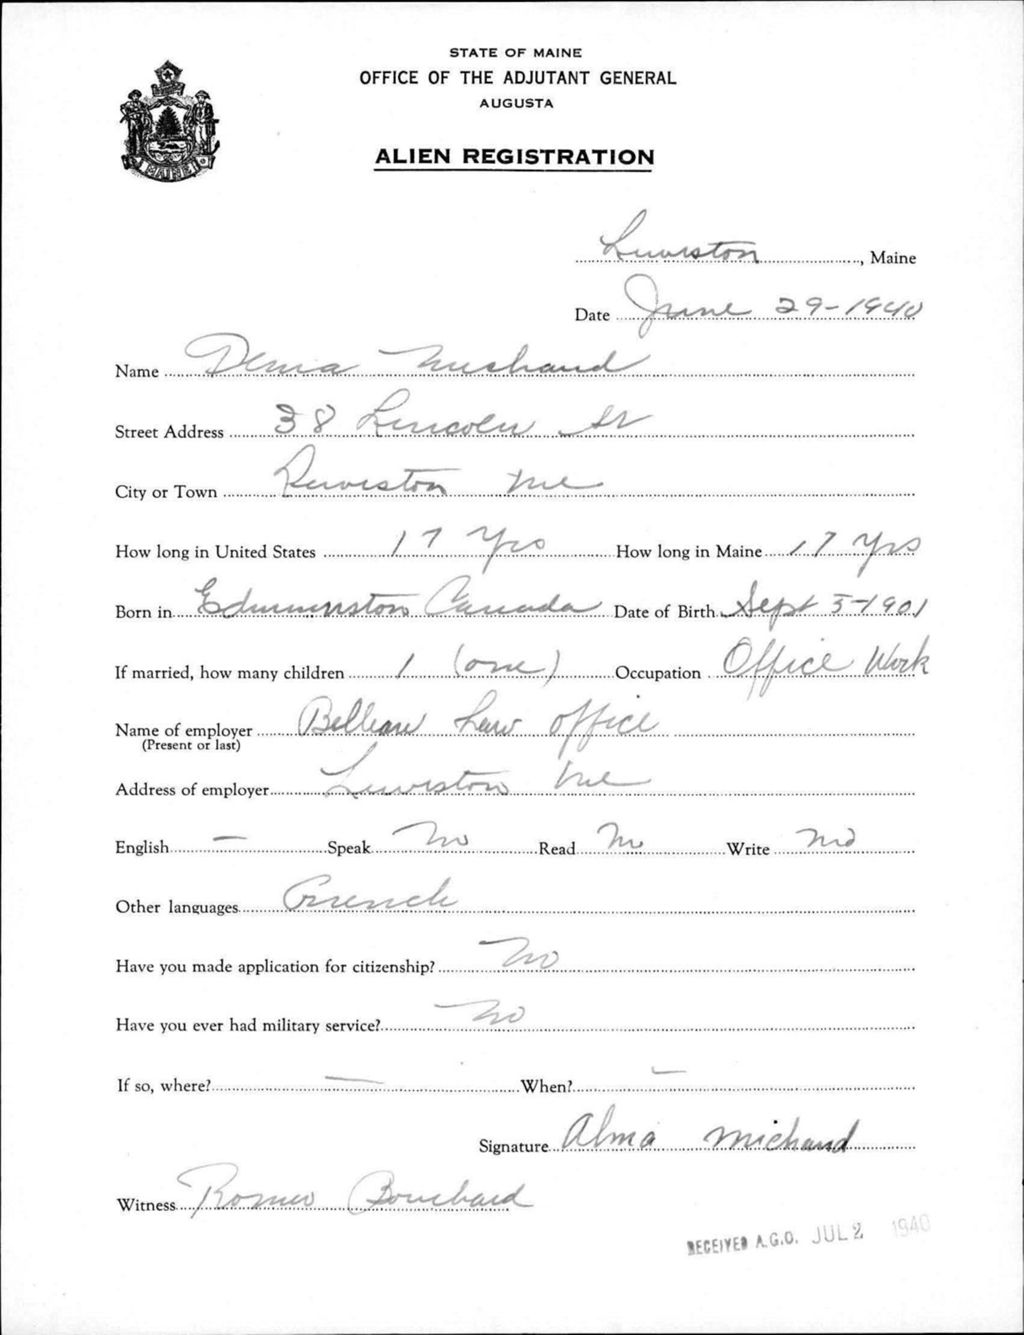 STATE OF MAINE
OFFICE OF THE ADJUTANT GENERAL
AUGUSTA
ALIEN REGISTRATION
MAINE
Lewiston, Maine
Date June 29-1940
Name Michaud
Street Address 38 Lincoln St
City or Town Lewiston Me
How long in United States 17 Yrs How long in Maine 17 Yrs
Born in Edmunston Canada Date of Birth Sept 5-1901
If married, how many children 1 (one) Occupation Office Work
Name of employer Belleau Law office
(Present or last)
Address of employer Lewiston Me
English - Speak No Read No Write No
Other languages French
Have you made application for citizenship? No
Have you ever had military service? No
If so, where? - When? -
Signature Alma Michaud
Witness Romeo Bouchard
RECEIVED A.G.O. JUL 2 1940